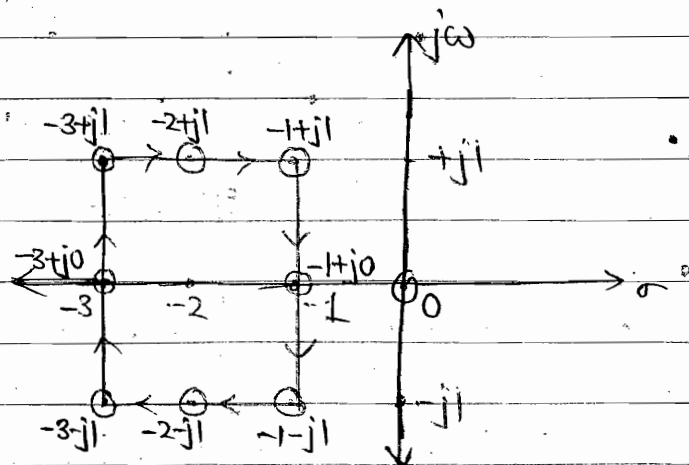 jω
-3+j1 -2+j1 -1+j1
+j1
-3+j0 -1+j0
-3 -2 -1 0 σ
-j1
-3-j1 -2-j1 -1-j1